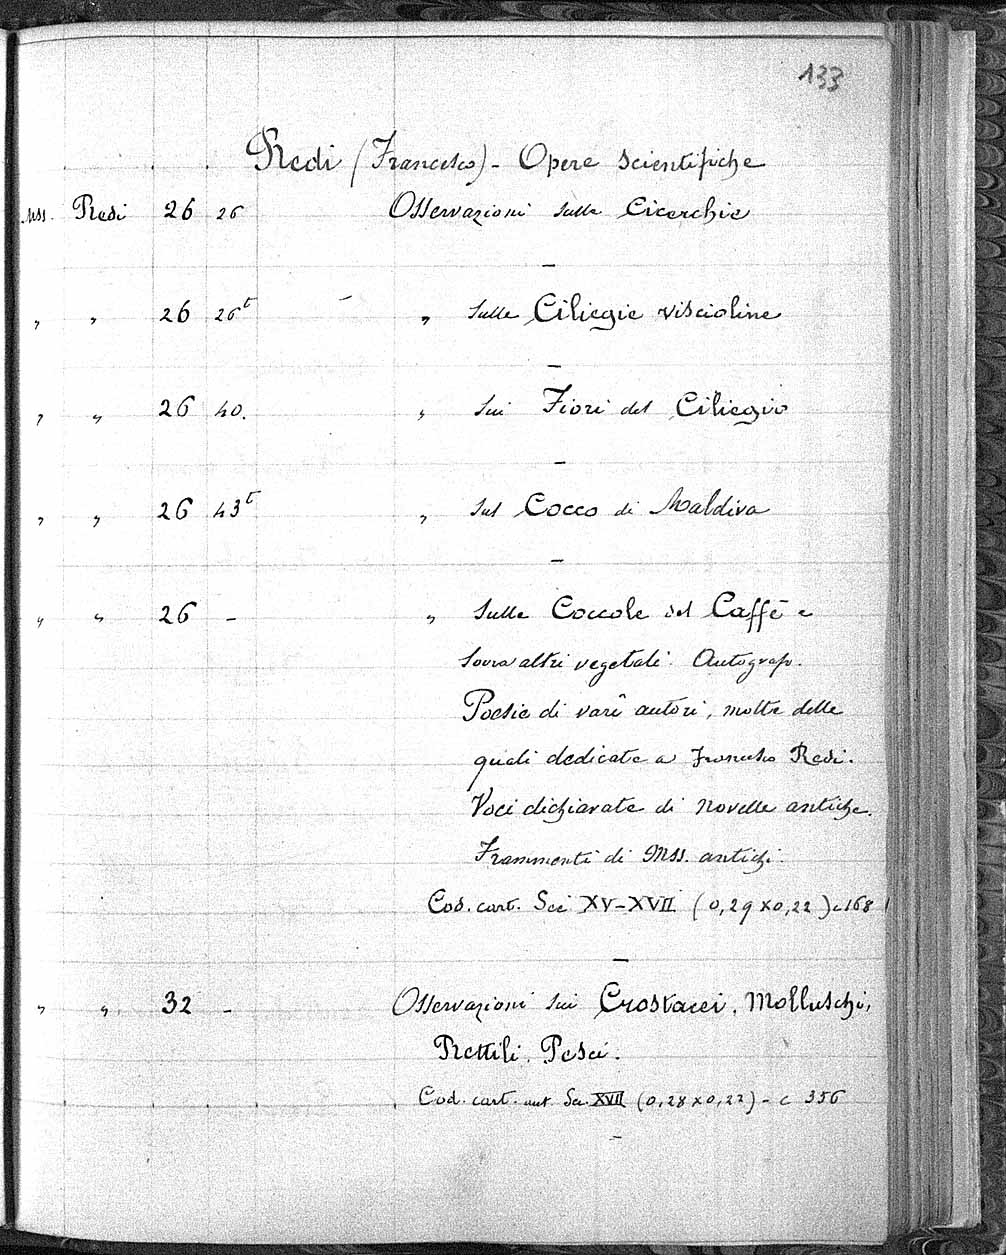 133
Redi (Francesco) - Opere scientifiche
Mss. Redi 26 26 Osservazioni sulle Cicerchie
—
" " 26 26t " sulle Ciliegie viscioline
—
" " 26 40. " sui Fiori del Ciliegio
—
" " 26 43t " sul Cocco di Maldiva
—
" " 26 - " sulle Coccole del Caffè e
sovra altri vegetali. Autograf.
Poesie di varî autori, molte delle
quali dedicate a Francesco Redi.
Voci dichiarate di Novelle antiche.
Frammenti di Mss. antichi.
Cod. cart. Sec XV-XVII (0,29 x 0,22) c 168
—
" " 32 - Osservazioni sui Crostacei, Molluschi,
Rettili, Pesci.
Cod. cart. aut. Sec. XVII (0,28 x 0,22) - c 356
—